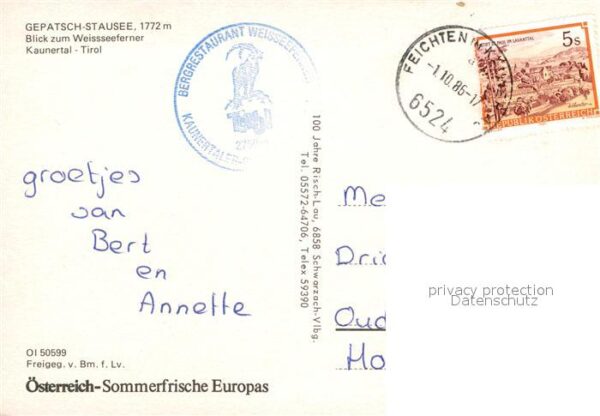 GEPATSCH-STAUSEE, 1772 m
Blick zum Weissseeferner
Kaunertal - Tirol
BERGRESTAURANT WEISSSEEFERNER
KAUNERTALER
Tirol
FEICHTEN
-1.10.86-17
6524
5s
REPUBLIK ÖSTERREICH
100 Jahre Risch-Lau, 6858 Schwarzach-Vlbg.
Tel. 05572-64706, Telex 59390
groetjes
van
Bert
en
Annette
Me
Dri
Oud
Ho
privacy protection
Datenschutz
OI 50599
Freigeg. v. Bm. f. Lv.
Österreich-Sommerfrische Europas